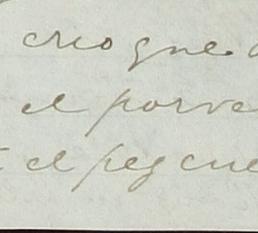 creo que
el porve
el peque